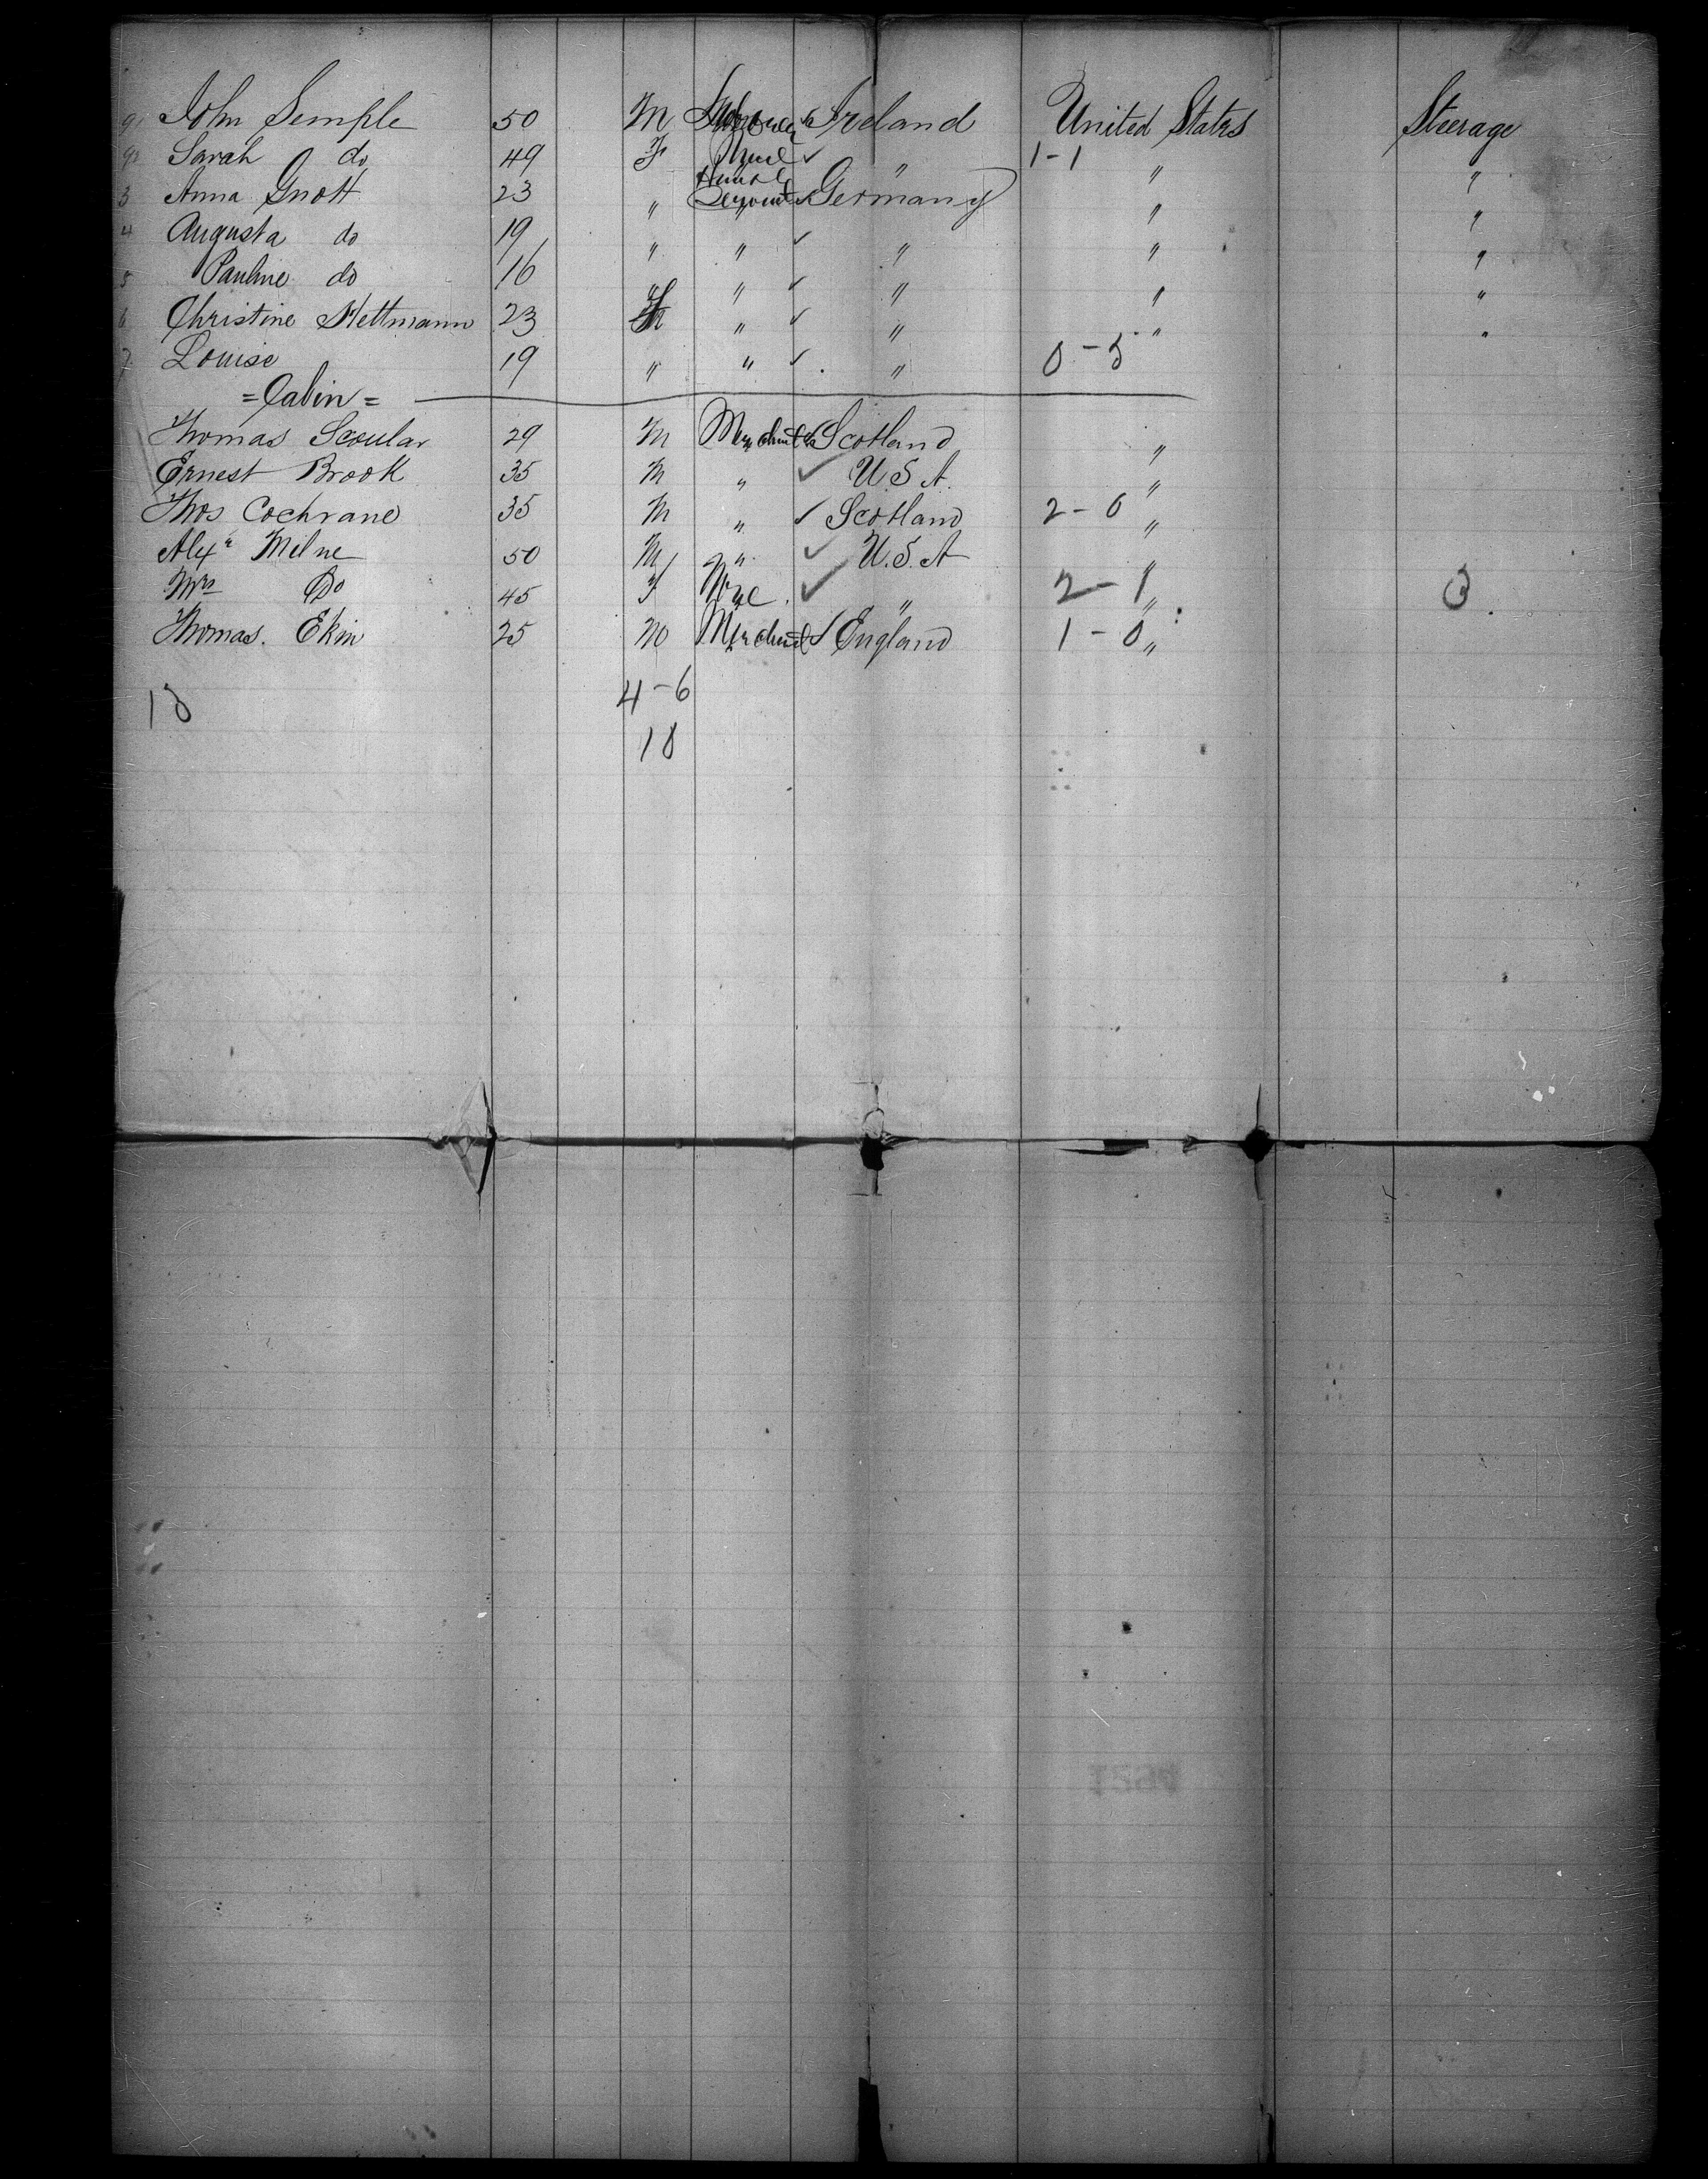 91 John Semple 50 M Ireland United States Steerage
92 Sarah do 49 F ✓ " 1-1 " "
3 Anna Gnott 23 " Female Servant Germany " "
4 Augusta do 19 " " ✓ " " "
5 Pauline do 16 " " ✓ " " "
6 Christine 23 F " ✓ " " "
7 Louise 19 " " ✓ " 0-5
= Cabin =
Thomas Scoular 29 M Merchant Scotland "
Ernest Brook 35 M " ✓ U.S.A. "
Thos Cochrane 35 M " ✓ Scotland 2-0 "
Alexr Milne 50 M " ✓ U.S.A "
Mrs Do 45 F Wife ✓ " 2-1 "
Thomas. Ekin 25 M Merchant ✓ England 1-0 "
4-6
18
18